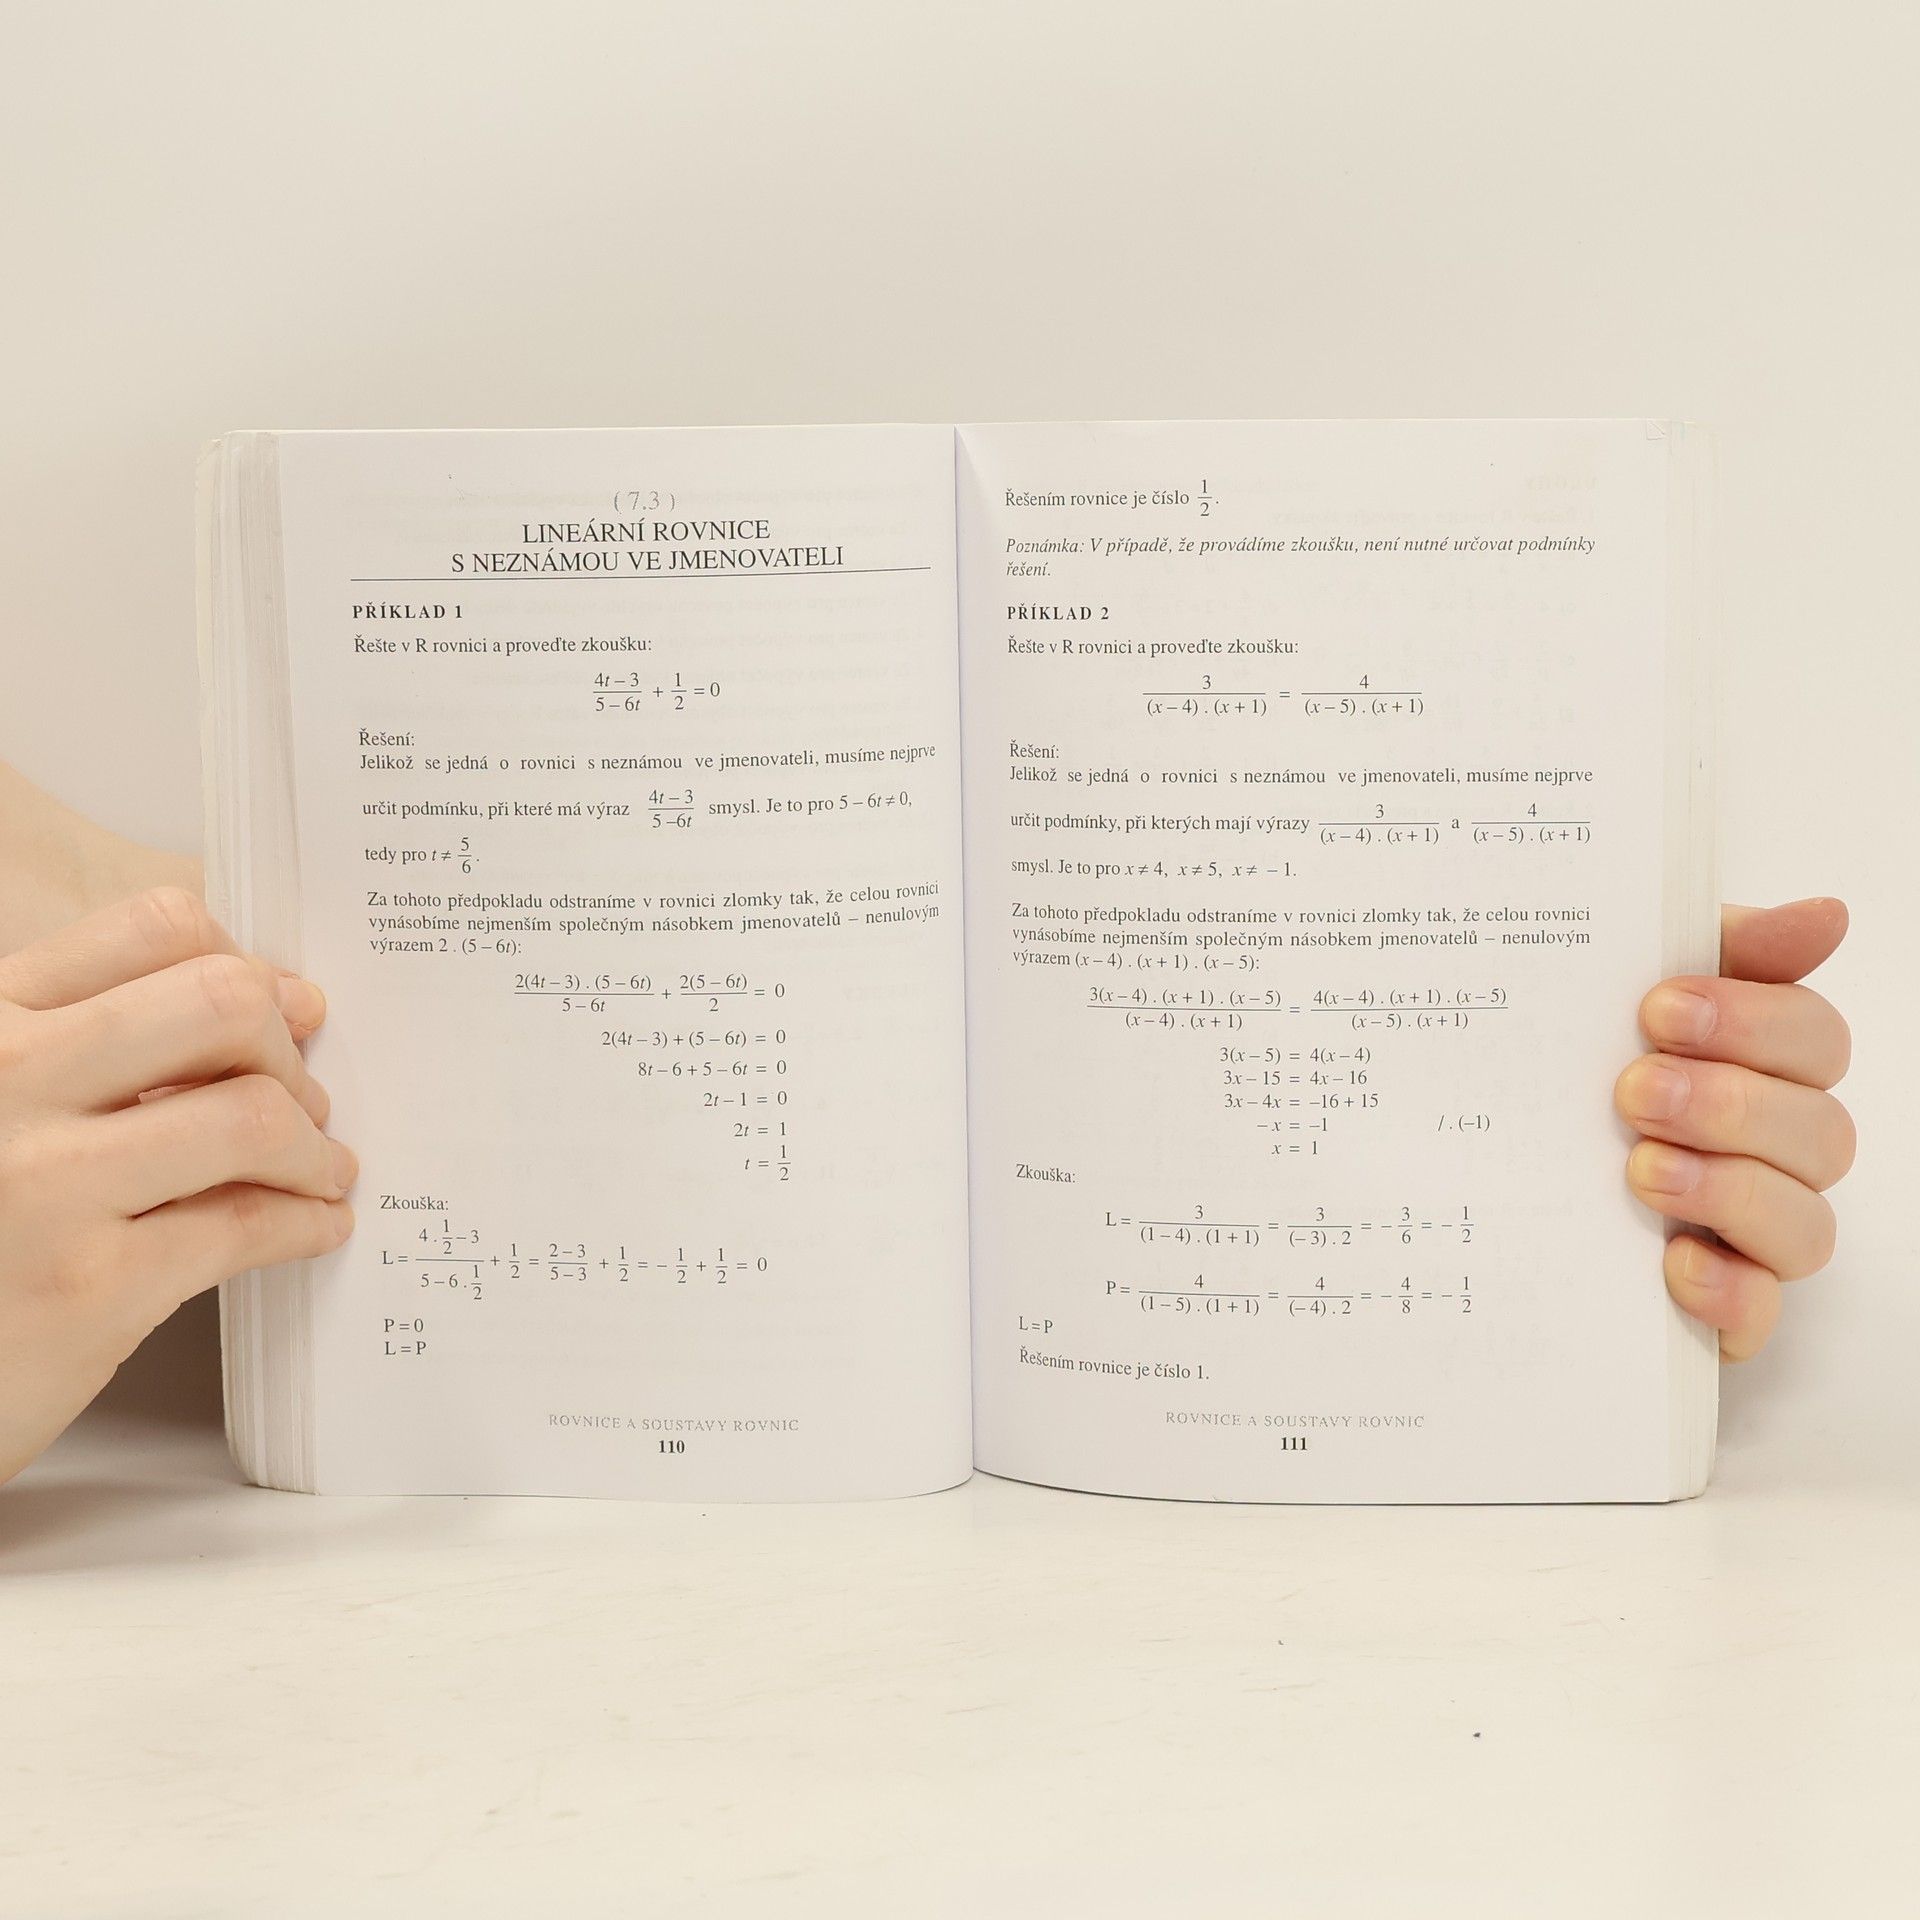 ( 7.3 )
LINEÁRNÍ ROVNICE
S NEZNÁMOU VE JMENOVATELI
PŘÍKLAD 1
Řešte v R rovnici a proveďte zkoušku:
(4t – 3)/(5 – 6t) + 1/2 = 0
Řešení:
Jelikož se jedná o rovnici s neznámou ve jmenovateli, musíme nejprve
určit podmínku, při které má výraz (4t – 3)/(5 –6t) smysl. Je to pro 5 – 6t ≠ 0,
tedy pro t ≠ 5/6.
Za tohoto předpokladu odstraníme v rovnici zlomky tak, že celou rovnici
vynásobíme nejmenším společným násobkem jmenovatelů – nenulovým
výrazem 2 . (5 – 6t):
(2(4t – 3) . (5 – 6t))/(5 – 6t) + (2(5 – 6t))/2 = 0
2(4t – 3) + (5 – 6t) = 0
8t – 6 + 5 – 6t = 0
2t – 1 = 0
2t = 1
t = 1/2
Zkouška:
L = (4 . 1/2 – 3)/(5 – 6 . 1/2) + 1/2 = (2 – 3)/(5 – 3) + 1/2 = – 1/2 + 1/2 = 0
P = 0
L = P
ROVNICE A SOUSTAVY ROVNIC
110
Řešením rovnice je číslo 1/2.
Poznámka: V případě, že provádíme zkoušku, není nutné určovat podmínky
řešení.
PŘÍKLAD 2
Řešte v R rovnici a proveďte zkoušku:
3/((x – 4) . (x + 1)) = 4/((x – 5) . (x + 1))
Řešení:
Jelikož se jedná o rovnici s neznámou ve jmenovateli, musíme nejprve
určit podmínky, při kterých mají výrazy 3/((x – 4) . (x + 1)) a 4/((x – 5) . (x + 1))
smysl. Je to pro x ≠ 4, x ≠ 5, x ≠ – 1.
Za tohoto předpokladu odstraníme v rovnici zlomky tak, že celou rovnici
vynásobíme nejmenším společným násobkem jmenovatelů – nenulovým
výrazem (x – 4) . (x + 1) . (x – 5):
(3(x – 4) . (x + 1) . (x – 5))/((x – 4) . (x + 1)) = (4(x – 4) . (x + 1) . (x – 5))/((x – 5) . (x + 1))
3(x – 5) = 4(x – 4)
3x – 15 = 4x – 16
3x – 4x = –16 + 15
– x = –1 / . (–1)
x = 1
Zkouška:
L = 3/((1 – 4) . (1 + 1)) = 3/((– 3) . 2) = – 3/6 = – 1/2
P = 4/((1 – 5) . (1 + 1)) = 4/((– 4) . 2) = – 4/8 = – 1/2
L = P
Řešením rovnice je číslo 1.
ROVNICE A SOUSTAVY ROVNIC
111